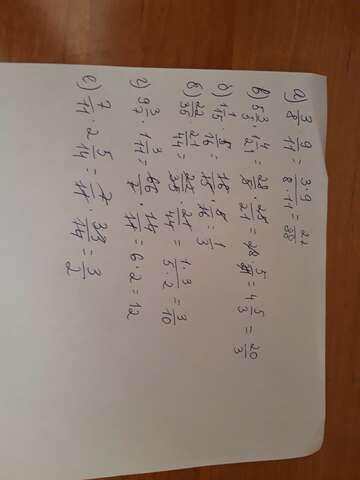 а) 3/8 · 9/11 = 3·9/8·11 = 27/88
в) 5 3/5 · 1 4/21 = 28/5 · 25/21 = 28·5/21 = 4 5/3 = 20/3
д) 1 1/15 · 5/16 = 16/15 · 5/16 = 1/3
б) 22/35 · 21/44 = 22/35 · 21/44 = 1·3/5·2 = 3/10
г) 9 3/7 · 1 3/11 = 66/7 · 14/11 = 6·2 = 12
е) 7/11 · 2 5/14 = 7/11 · 33/14 = 3/2